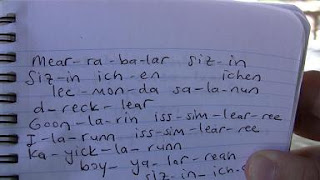 Mear-ra-ba-lar siz-in
Siz-in ich-en ichen
lee-mon-da sa-la-nun
d-reck-lear
Goon-la-rin iss-sim-lear-ree
I-la-runn iss-sim-lear-ree
Ka-yick-la-runn
boy-ya-lar-reah
siz-in ich-e